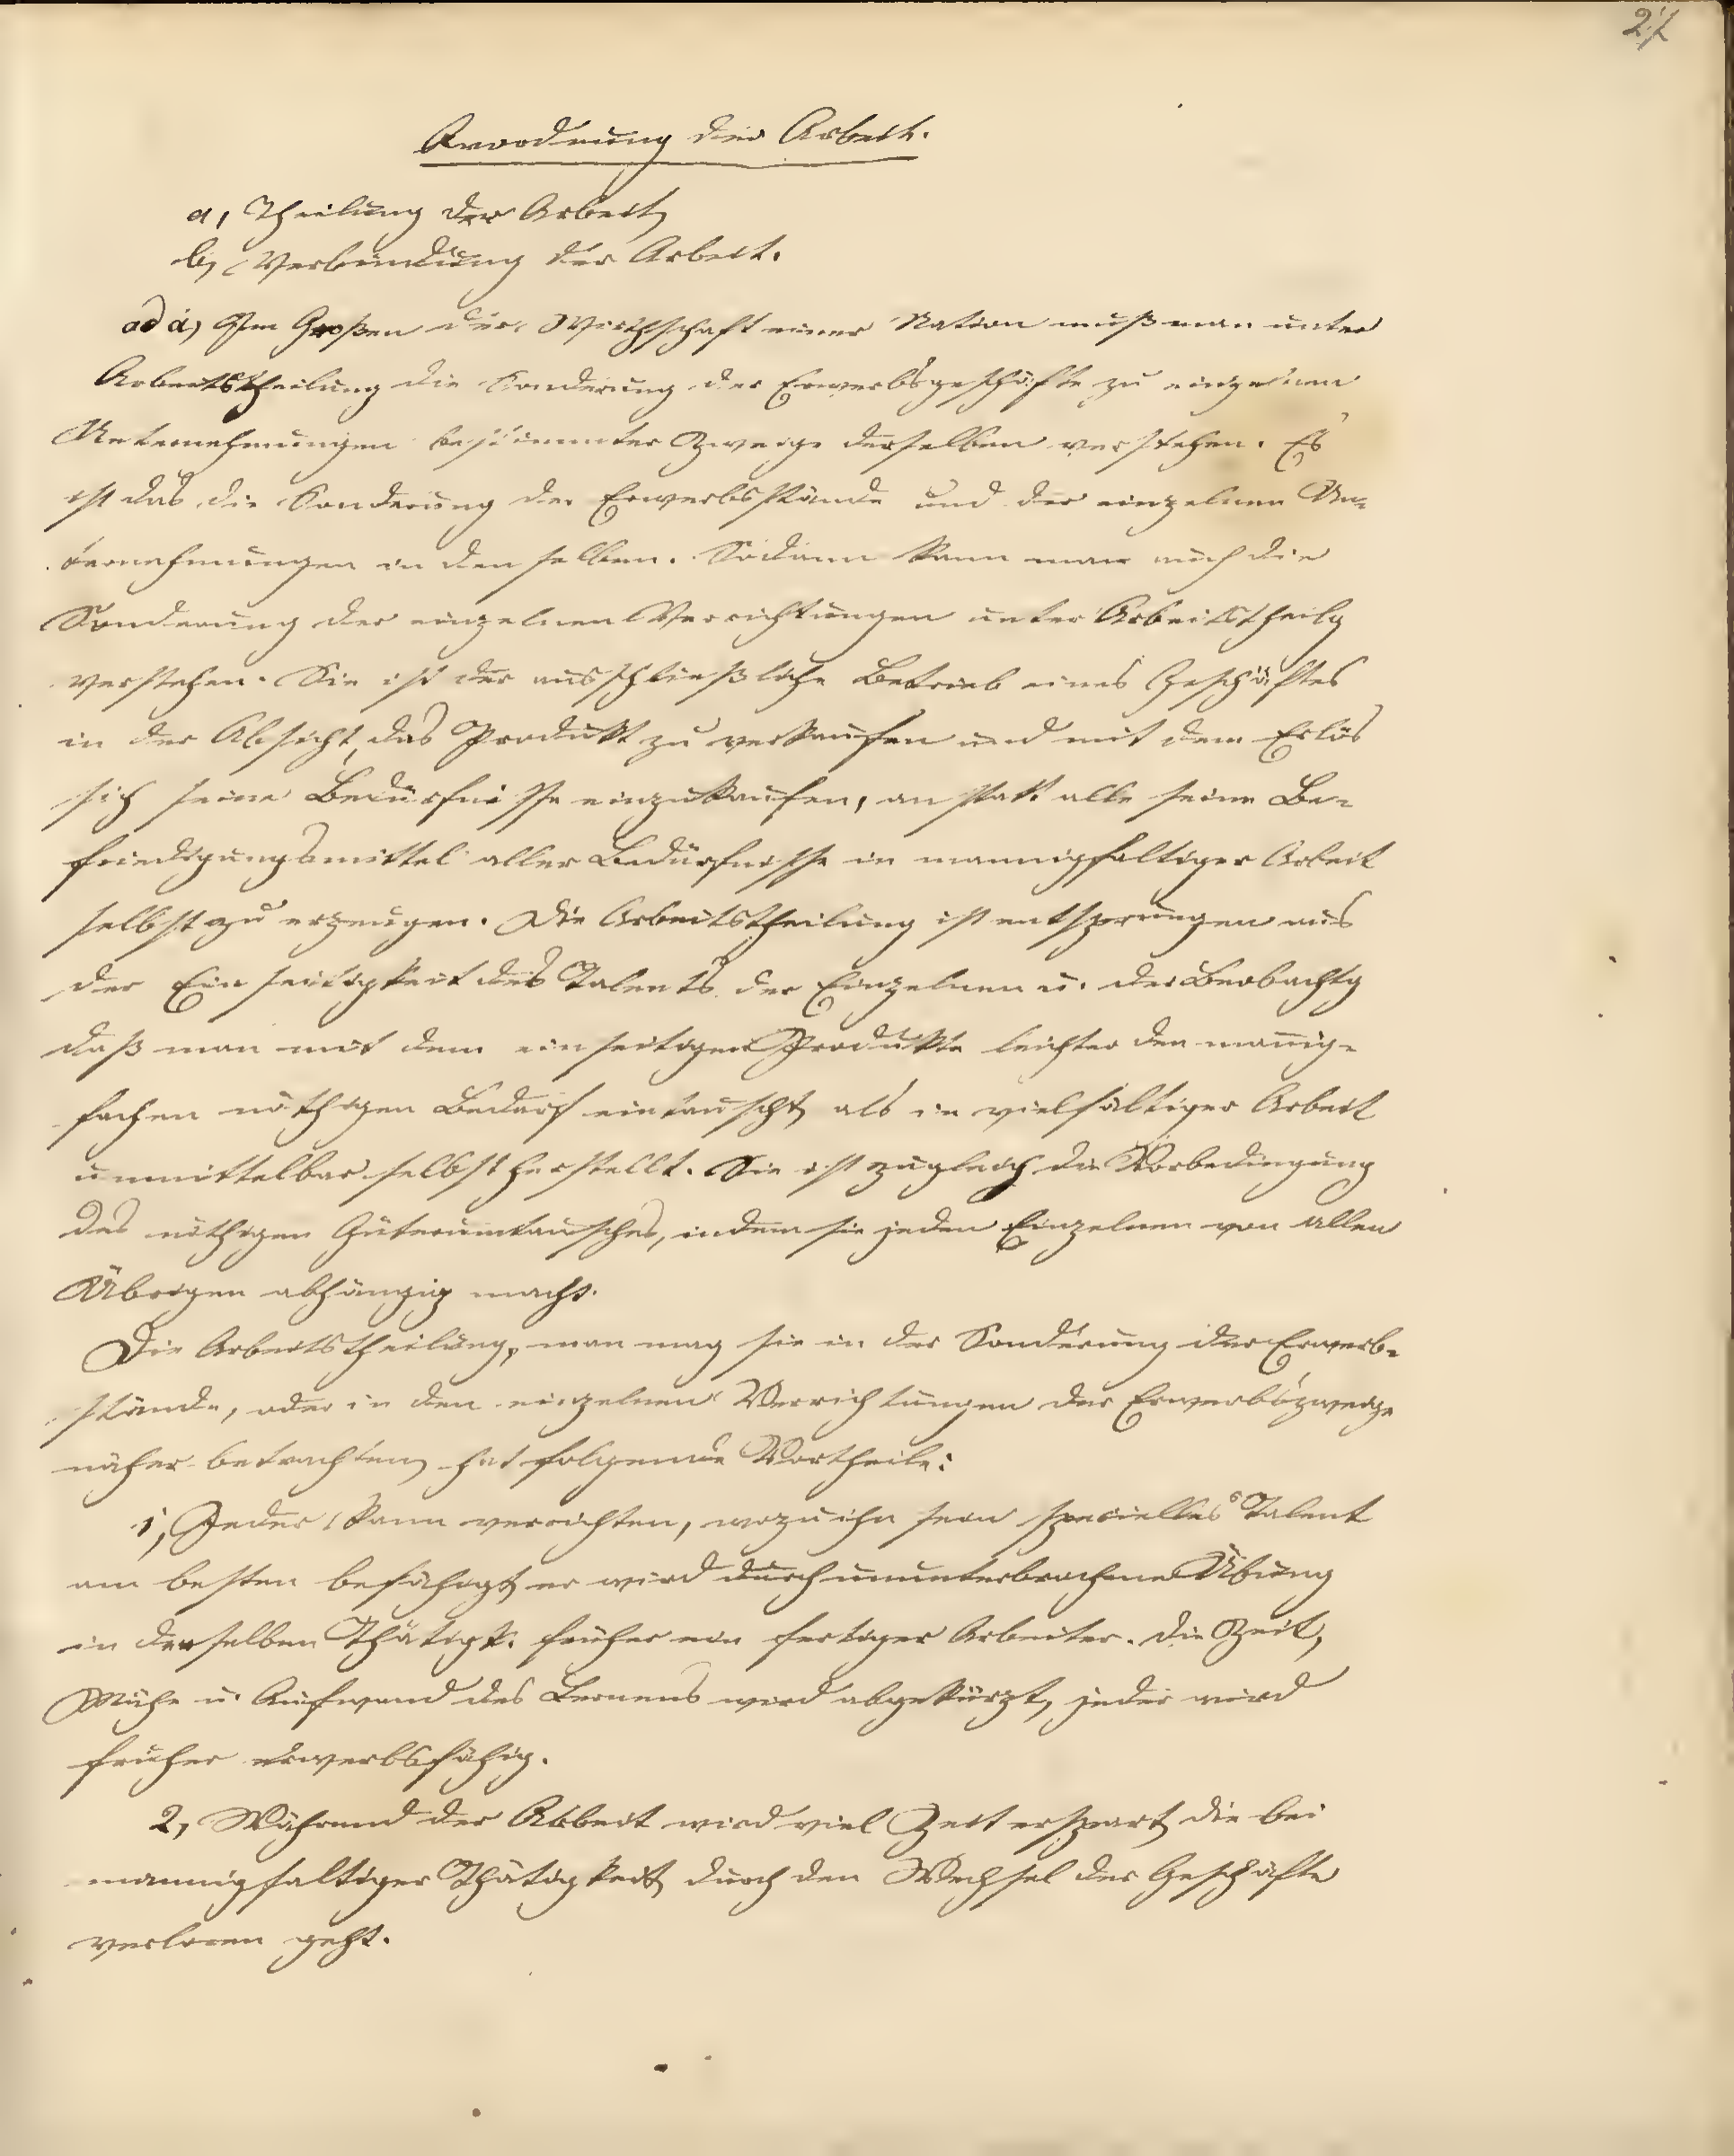 27
Anordnung der Arbeit.
a, Theilung der Arbeit,
b, Verbindung der Arbeit.
ad a, Im Großen der Wirthschaft einer Nation muß man unter
Arbeitstheilung die Sonderung der Erwerbsgeschäfte zu einzelnen
Unternehmungen bestimmter Zweige derselben verstehen. Es
ist das die Sonderung der Erwerbsstände und der einzelnen Un-
ternehmungen in denselben. Sodann kann man auch die
Sonderung der einzelnen Verrichtungen unter Arbeitstheilg
verstehen. Sie ist der ausschließliche Betrieb eines Geschäftes
in der Absicht, das Produkt zu verkaufen und mit dem Erlös
sich seine Bedürfnisse einzukaufen, anstatt alle seine Be-
friedigungsmittel aller Bedürfnisse in mannigfaltiger Arbeit
selbst zu erzeugen. Die Arbeitstheilung ist entsprungen aus
der Einseitigkeit des Talents der Einzelnen u. der Beobachtg
daß man mit dem einseitigen Produkte leichter den mannig-
fachen nöthigen Bedarf eintauscht, als in vielfältiger Arbeit
unmittelbar selbst herstellt. Sie ist zugleich die Vorbedingung
des nöthigen Güterumtausches, indem sie jeden Einzelnen von allen
Übrigen abhängig macht.
Die Arbeitstheilung, man mag sie in der Sonderung der Erwerb-
stände, oder in den einzelnen Verrichtungen der Erwerbszweige
näher betrachten, hat folgende Vortheile:
1, Jeder kann verrichten, wozu ihn sein specielles Talent
am besten befähigt, er wird durch ununterbrochene Übung
in derselben Thätigk. früher ein fertiger Arbeiter. Die Zeit,
Mühe u. Aufwand des Lernens wird abgekürzt, jeder wird
früher erwerbsfähig.
2, Während der Arbeit wird viel Zeit erspart, die bei
mannigfaltiger Thätigkeit durch den Wechsel der Geschäfte
verloren geht.